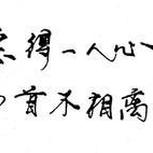 得一人心
首不相離